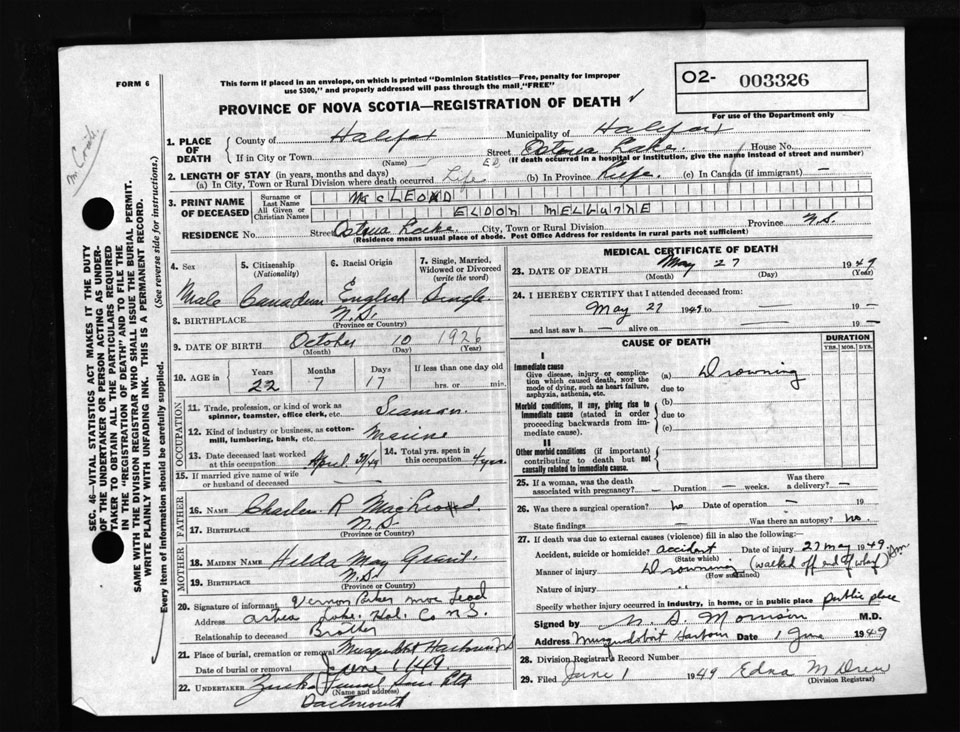 FORM 6
This form if placed in an envelope, on which is printed "Dominion Statistics—Free, penalty for improper
use $300," and properly addressed will pass through the mail "FREE"
O2- 003326
For use of the Department only
PROVINCE OF NOVA SCOTIA—REGISTRATION OF DEATH
1. PLACE OF DEATH
County of Halifax Municipality of Halifax
If in City or Town (Name) Street Ostrea Lake. House No.
(If death occurred in a hospital or institution, give the name instead of street and number)
2. LENGTH OF STAY (in years, months and days)
(a) In City, Town or Rural Division where death occurred Life (b) In Province Life. (c) In Canada (if immigrant) —
3. PRINT NAME OF DECEASED
Surname or Last Name MacLEOD
All Given or Christian Names ELDON MELBURNE
RESIDENCE No. Street Ostrea Lake. City, Town or Rural Division Province N.S.
(Residence means usual place of abode. Post Office Address for residents in rural parts not sufficient)
4. Sex
5. Citizenship (Nationality)
6. Racial Origin
7. Single, Married, Widowed or Divorced (write the word)
Male Canadian English Single.
8. BIRTHPLACE N.S.
(Province or Country)
9. DATE OF BIRTH October 10 1926
(Month) (Day) (Year)
10. AGE in Years Months Days If less than one day old
22 7 17 hrs. or min.
OCCUPATION
11. Trade, profession, or kind of work as spinner, teamster, office clerk, etc. Seaman.
12. Kind of industry or business, as cotton-mill, lumbering, bank, etc. Marine
13. Date deceased last worked at this occupation April 30/49 14. Total yrs. spent in this occupation 4 yrs.
15. If married give name of wife or husband of deceased —
FATHER
16. NAME Charles R MacLeod.
17. BIRTHPLACE N.S.
(Province or Country)
MOTHER
18. MAIDEN NAME Hilda May Grant.
19. BIRTHPLACE N.S.
(Province or Country)
20. Signature of informant Vernon Parker
Address Lake. Hal. Co. N.S.
Relationship to deceased Brother
21. Place of burial, cremation or removal Musquodoboit Harbour N.S
Date of burial or removal June 1/49.
22. UNDERTAKER Zink Funeral Ltd
(Name and address)
Dartmouth
MEDICAL CERTIFICATE OF DEATH
23. DATE OF DEATH May 27 1949
(Month) (Day) (Year)
24. I HEREBY CERTIFY that I attended deceased from:
May 27 1949 to — 19 —
and last saw h — alive on — 19 —
CAUSE OF DEATH
DURATION
YRS. MOS. DYS.
I
Immediate cause
Give disease, injury or complication which caused death, NOT the mode of dying, such as heart failure, asphyxia, asthenia, etc.
(a) Drowning
due to
Morbid conditions, if any, giving rise to immediate cause (stated in order proceeding backwards from immediate cause).
(b)
due to
(c)
II
Other morbid conditions (if important) contributing to death but not causally related to immediate cause.
25. If a woman, was the death associated with pregnancy? — Duration — weeks. Was there a delivery? —
26. Was there a surgical operation? No Date of operation — 19
State findings — Was there an autopsy? No.
27. If death was due to external causes (violence) fill in also the following:
Accident, suicide or homicide? accident Date of injury 27 May 1949
(State which)
Manner of injury Drowning (walked off end of wharf)
(How sustained)
Nature of injury
Specify whether injury occurred in industry, in home, or in public place public place
Signed by M.D.
Address Musquodoboit Harbour Date 1 June 1949
28. Division Registrar's Record Number
29. Filed June 1 1949 Edna M Drew
(Division Registrar)
SEC. 46—VITAL STATISTICS ACT MAKES IT THE DUTY
OF THE UNDERTAKER OR PERSON ACTING AS UNDER-
TAKER TO OBTAIN ALL THE PARTICULARS REQUIRED
IN THE "REGISTRATION OF DEATH" AND TO FILE THE
SAME WITH THE DIVISION REGISTRAR WHO SHALL ISSUE THE BURIAL PERMIT.
WRITE PLAINLY WITH UNFADING INK. THIS IS A PERMANENT RECORD.
Every item of information should be carefully supplied. (See reverse side for instructions.)